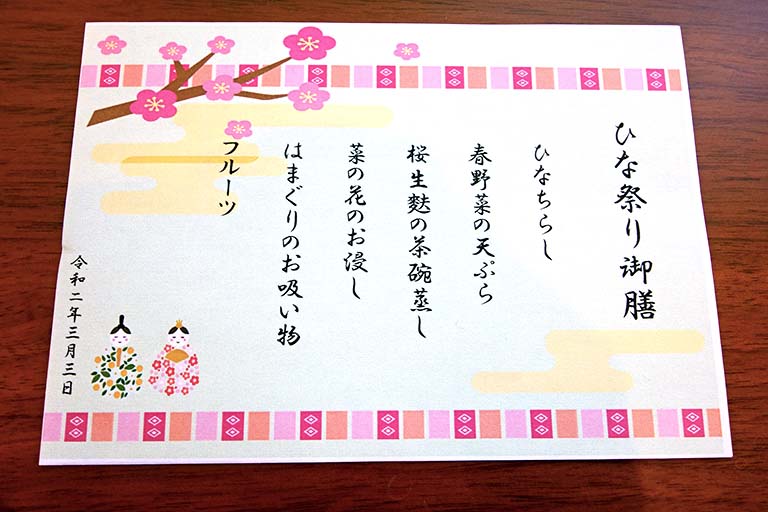 ひな祭り御膳
ひなちらし
春野菜の天ぷら
桜生麩の茶碗蒸し
菜の花のお浸し
はまぐりのお吸い物
フルーツ
令和二年三月三日